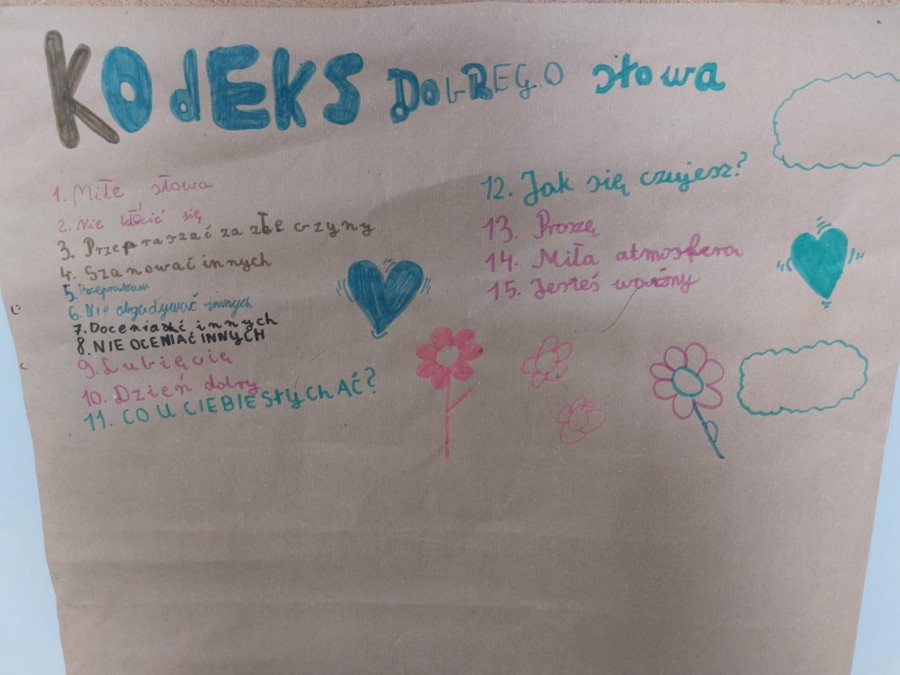 KOdEKS DObREGO słowa
1. Miłe słowa
2. Nie kłócić się
3. Przepraszać za złe czyny
4. Szanować innych
5. Przepraszam
6. Nie obgadywać innych
7. Doceniać innych
8. NIE OCENIAĆ INNYCH
9. Lubię cię
10. Dzień dobry
11. CO U CIEBIE SŁYChAĆ?
12. Jak się czujesz?
13. Proszę
14. Miła atmosfera
15. Jesteś ważny